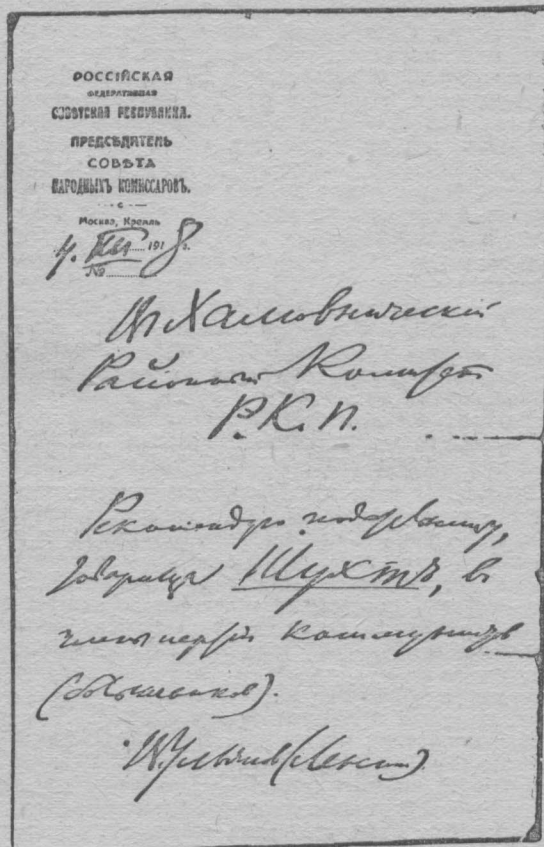 РОССІЙСКАЯ
ФЕДЕРАТИВНАЯ
СОВѢТСКАЯ РЕСПУБЛИКА.
ПРЕДСѢДАТЕЛЬ
СОВѢТА
НАРОДНЫХЪ КОМИССАРОВЪ.
Москва, Кремль
1918 г.
№
В Хамовнический
Районный Комитет
Р.К.П.
Рекомендую
товарища Шухтъ, в
члены партии коммунистов
(большевиков).
В. Ульянов (Ленин).